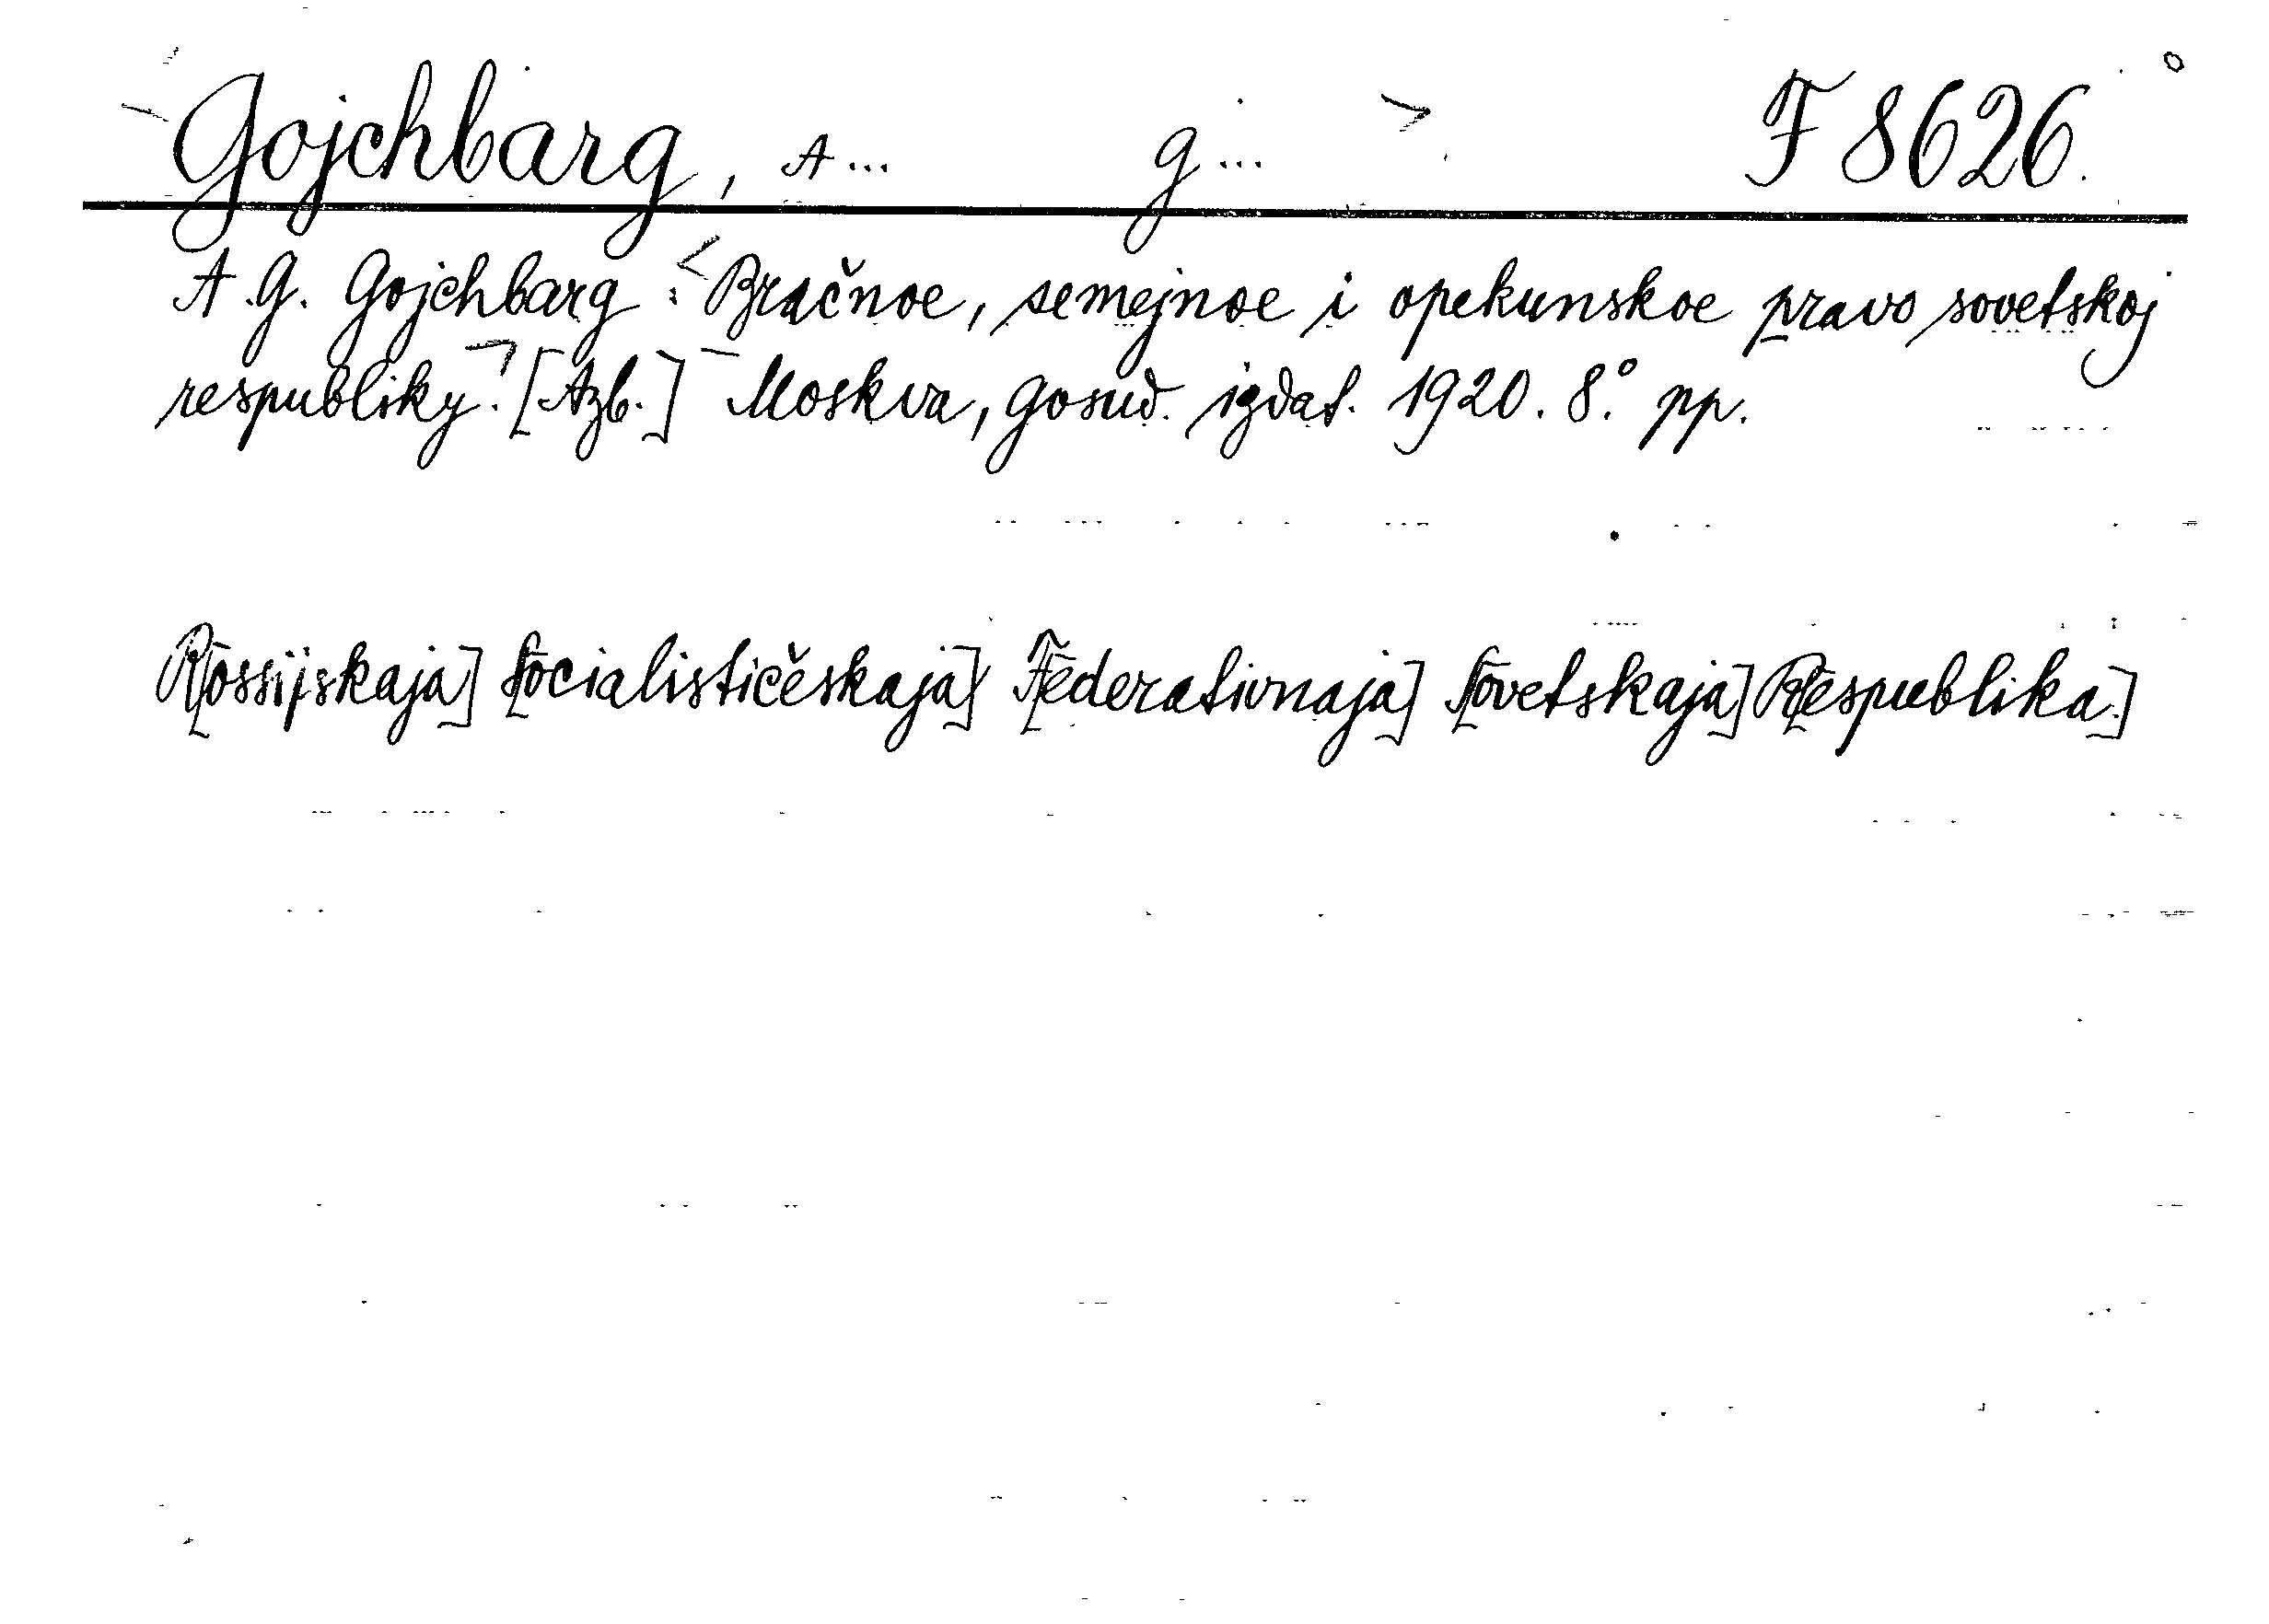 Gojchbarg, A... G... F 8626.
A.G. Gojchbarg: Bračnoe, semejnoe i opekunskoe pravo sovetskoj
respubliky. [Azb.] Moskva, gosud. izdat. 1920. 8.° pp.
R[ossijskaja] S[ocialističeskaja] F[ederativnaja] S[ovetskaja] R[espublika.]